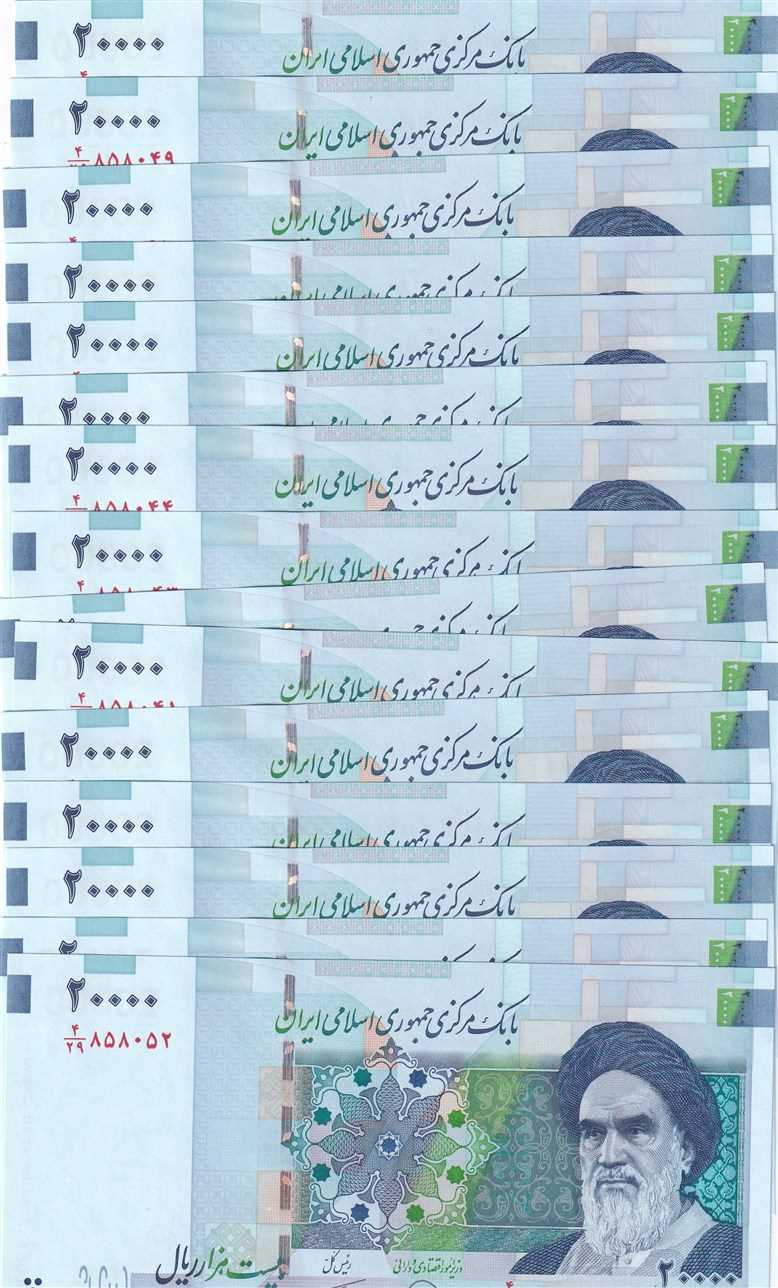 ۲۰۰۰۰
بانک مرکزی جمهوری اسلامی ایران
۲۰۰۰۰
بانک مرکزی جمهوری اسلامی ایران
۴
۸۵۸۰۴۹
۲۰۰۰۰
بانک مرکزی جمهوری اسلامی ایران
۲۰۰۰۰
بانک مرکزی جمهوری اسلامی ایران
۲۰۰۰۰
بانک مرکزی جمهوری اسلامی ایران
۲۰۰۰۰
بانک مرکزی جمهوری اسلامی ایران
۲۰۰۰۰
بانک مرکزی جمهوری اسلامی ایران
۴
۸۵۸۰۴۴
۲۰۰۰۰
بانک مرکزی جمهوری اسلامی ایران
۴
۸۵۸۰۴۳
۲۰۰۰۰
بانک مرکزی جمهوری اسلامی ایران
۴
۸۵۸۰۴۱
۲۰۰۰۰
بانک مرکزی جمهوری اسلامی ایران
۲۰۰۰۰
بانک مرکزی جمهوری اسلامی ایران
۲۰۰۰۰
بانک مرکزی جمهوری اسلامی ایران
۲۰۰۰۰
بانک مرکزی جمهوری اسلامی ایران
۴/۲۹ ۸۵۸۰۵۲
بیست هزار ریال
رئیس کل
وزیر امور اقتصادی و دارائی
۲۰۰۰۰